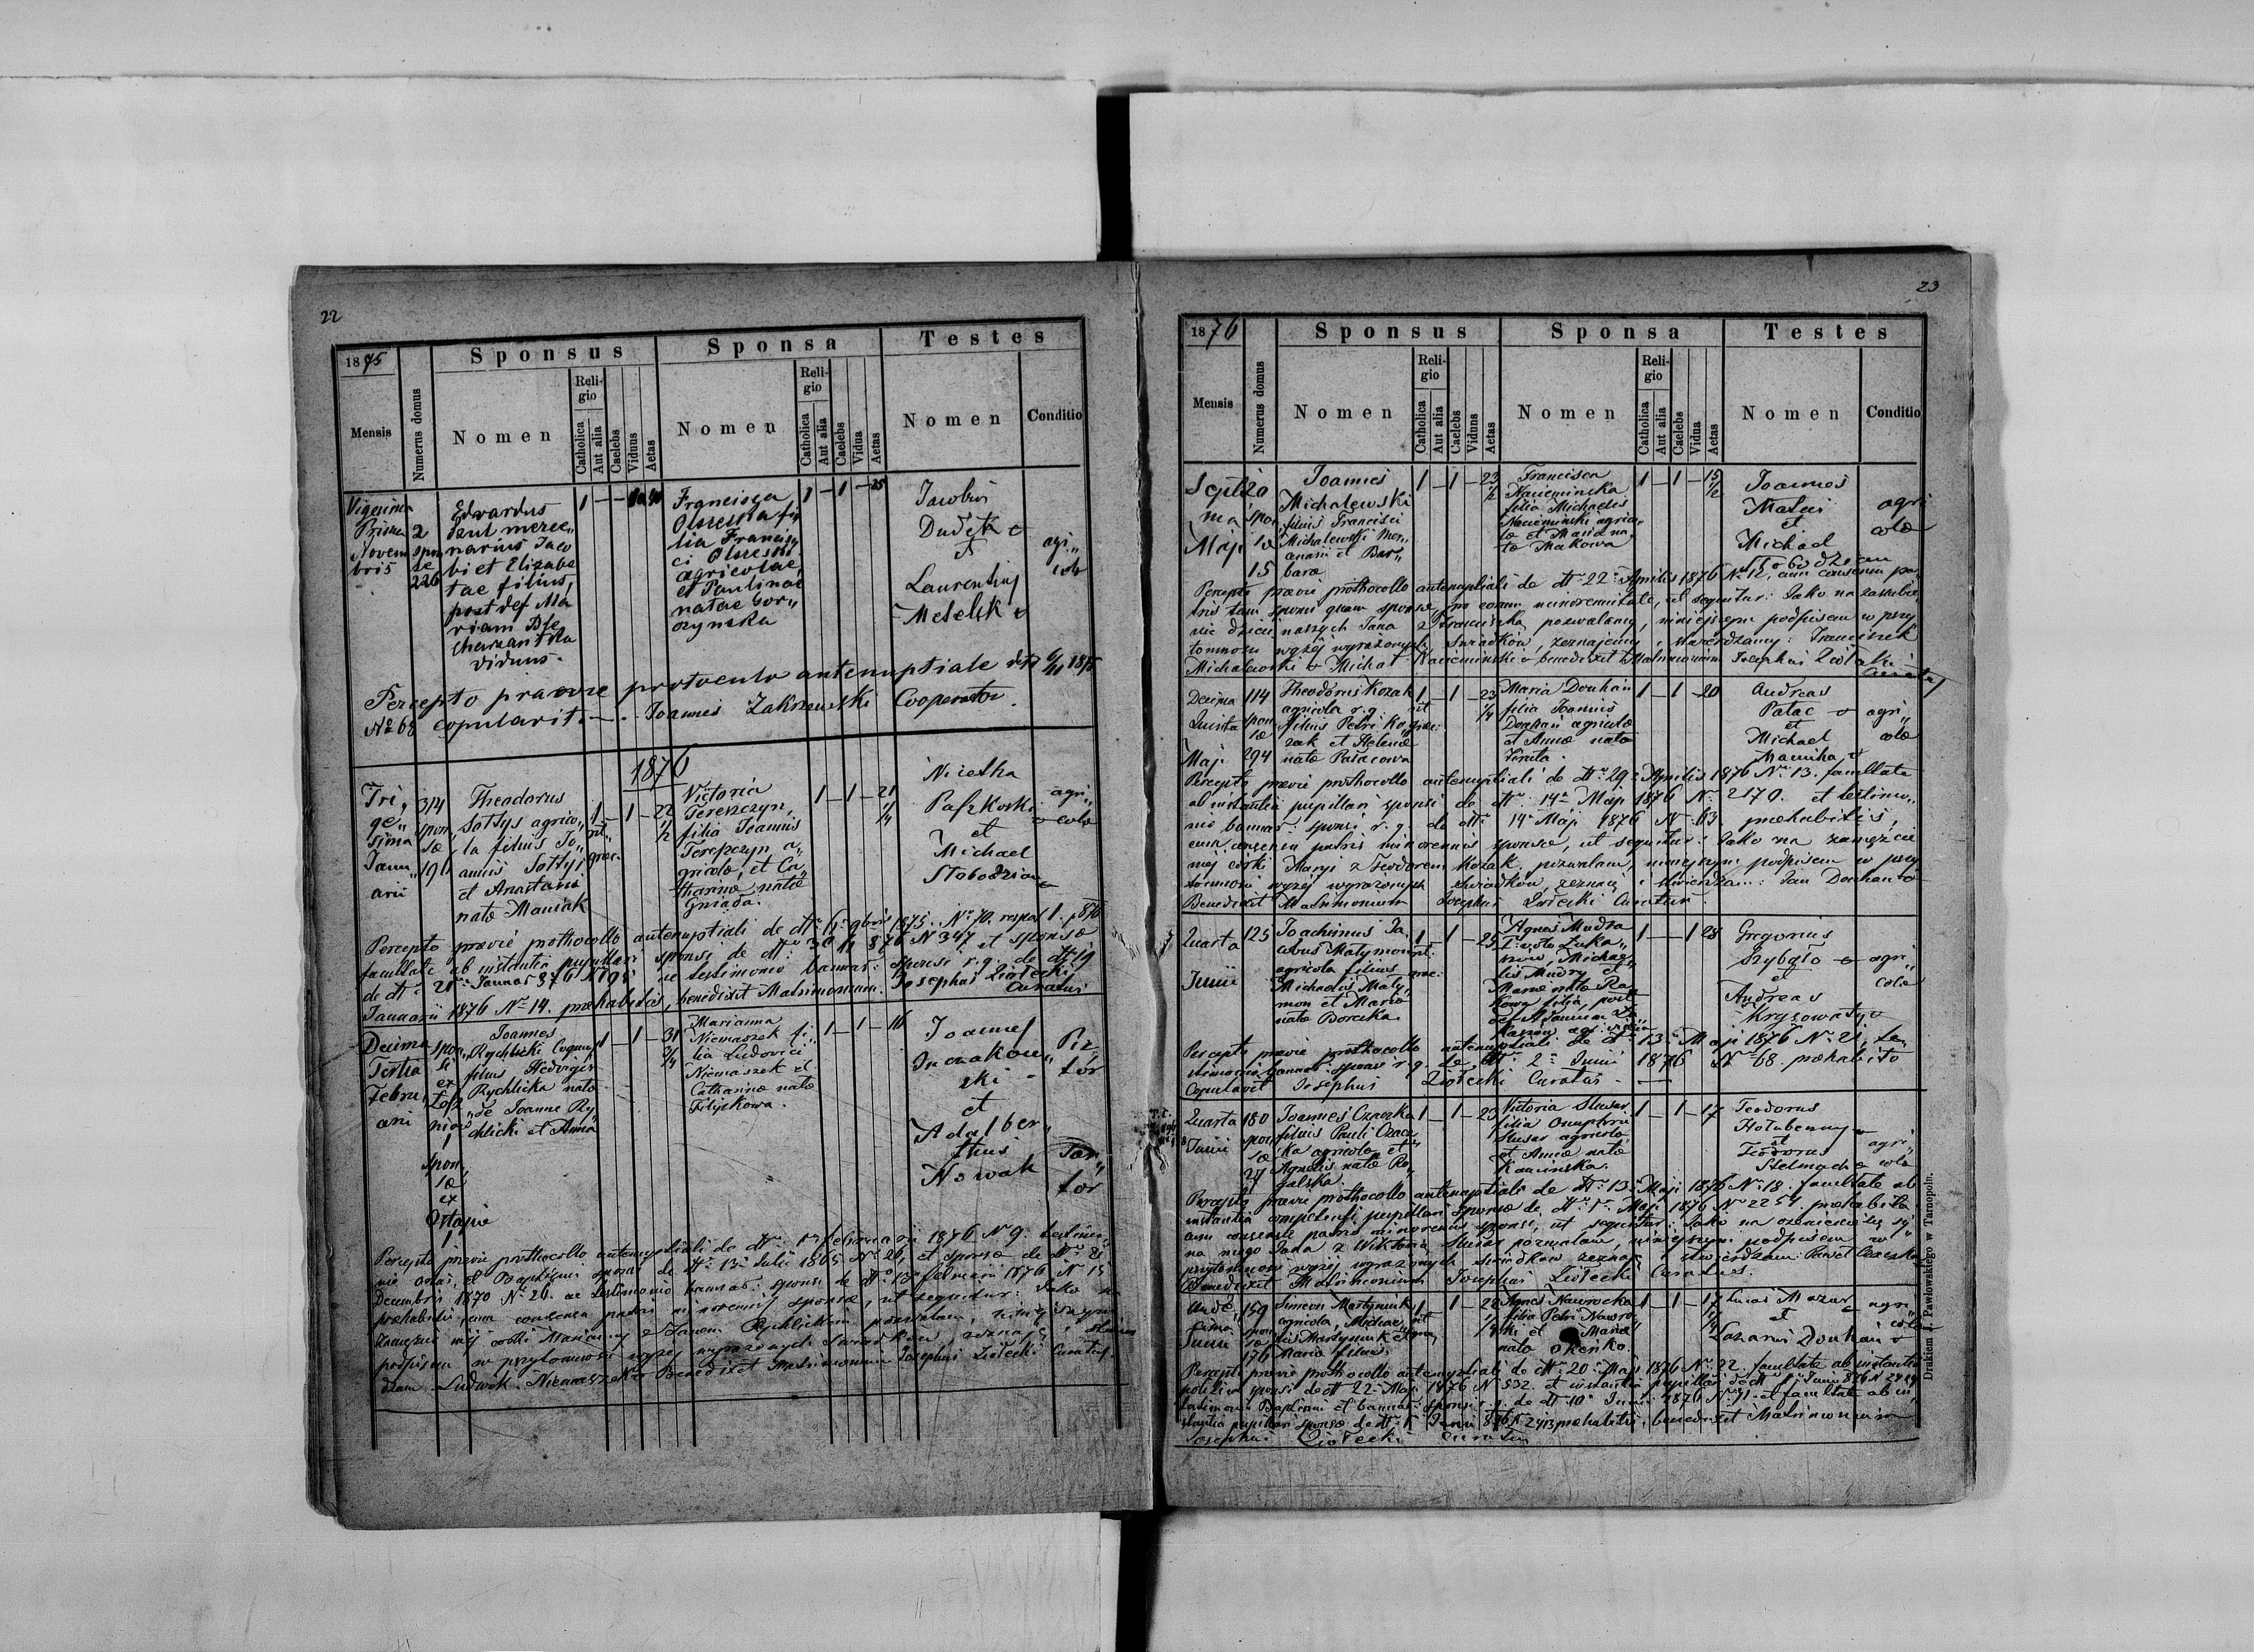 22
1875
Sponsus
Sponsa
Testes
Mensis
Numerus domus
Nomen
Religio
Catholica
Aut alia
Caelebs
Viduus
Aetas
Nomen
Religio
Catholica
Aut alia
Caelebs
Vidua
Aetas
Nomen
Conditio
Vigesima
Prima
Novem
bris
2
spon
sae
226
Edwardus
narius Jaco
bi et Elizabe
tae filius,
post def Ma
riam
viduus.
1 — —
Francisca
fi„
lia Francis
ci
agricolae,
et Paulinae
natae Gor„
czynska
1 — 1 — 25
Jacobus
Dudek
et
Laurentius
agri„
colae
Percepto praevie protocolo antenuptiale
No 68 copulavit. Joannes Zakrzewski Cooperator.
1876
Tri„
ge„
sima
Janu„
arii
314
spon„
sae
191
Theodorus
Sottys agrico„
la filius Jo„
annis Sottys
et Anastasiae
natae Maniak
1 — 1 — 22 1/2
rit
graec.
Victoria
Tereszczyn,
filia Joannis
Tereszczyn a„
gricolae, et Ca„
tharinae natae
Gniada.
1 — 1 — 21 1/4
Nicetha
Paszkoski
et
Michael
Stobodzian
agri„
colae
Percepto praevie prothocollo antenuptiali de dto 6 9bris 1875. No 70.
facultate ab instantia pupillari sponsi de dto No 347 et sponsae
de dto 21 Januar 876 N 195 ac testimonio bannor: sponsi r.g. de dto 19
Januarii 1876 No 14. praehabitis, benedixit Matrimonium. Josephus Ziołecki
Curatus
Decima
Tertia
Febru„
arii
spon„
si
ex
1
spon„
sae
ex
Ostapie
1
Joannes
Rychlicki
filius Hedvigis
Rychlicka nata
de Joanne Ry„
chlicki et Anna
1 — 1 — 31 3/4
Marianna
Niemaszek fi„
lia Ludovici
Niemaszek et
Catharinae natae
Filipkowa.
1 — 1 — 16
Joannes
et
Adalber„
thus
Nowak
Percepto praevie prothocollo antenuptiali de dto 1 Februarii 1876 No 9.
Baptismi sponsi de dto 13 Julii 1865 No 26, et sponsae de dto 8
Decembris 1870 No 26. ac testimonio bannor: sponsi de dto 13 Februarii 1876 N 15
praehabitis, cum consensu patris minorennis sponsae, ut sequitur: Jako na
zamęście mej córki Marianny z Janem Rychlickim pozwalam, niniejszym
podpisem w przytomności wyżej wyrażonych świadków, zeznaję i stwier
dzam. Ludwik Niemaszek Benedixit Matrimonium Josephus Ziołecki Curatus.
23
1876
Sponsus
Sponsa
Testes
Mensis
Numerus domus
Nomen
Religio
Catholica
Aut alia
Caelebs
Viduus
Aetas
Nomen
Religio
Catholica
Aut alia
Caelebs
Vidua
Aetas
Nomen
Conditio
Septi
ma
Maji
20
spon
sae
15
Joannes
Michalewski
filius Francisci
Michalewski Mer„
cenarii et Bar„
barae
1 — 1 — 23 1/2
Francisca
Nacieminska
filia Michaelis
Nacieminski agrico„
lae et Mariae na„
tae Makowa
1 — 1 — 15 1/2
Joannes
Matus
et
Michael
Stobodzian
agri
colae
Percepto praevie prothocollo antenuptiali de dto 22 Aprilis 1876 No 12, cum consensu pa„
tris tam sponsi quam sponsae, pro eorum minorennitate, ut sequitur: Jako na zaślubie
nie dzieci naszych Jana z Franciszką pozwalamy, niniejszym podpisem w przy
tomności wyżej wyrażonych świadków, zeznajemy i stwierdzamy: Franciszek
Michalewski Michał Nacieminski benedixit Matrimonium Josephus Ziołecki
Curatus
Decima
Quinta
Maji
114
spon
sae
294
Theodorus Kozak
agricola r.g.
filius Petri Ko„
zak et Helenae
natae Pałacowa
1 — 1 — 23 1/4
rit
graec:
Maria Douhan
filia Joannis
Douhan agricolae
et Annae natae
1 — 1 — 20
Andreas
Patac
et
Michael
agri„
colae
Percepto praevie prothocollo antenuptiali de dto 29 Aprilis 1876 No 13. facultate
ab instantia pupillari sponsi de dto 14 Maji 1876 No 2170. et testimo„
nio bannor: sponsi r.g. de dto 14 Maji 1876 No 63. praehabitis,
cum consensu patris minorennis sponsae, ut sequitur: Jako na zamęście
mej córki Maryi z Teodorem Kozak, pozwalam, niniejszym podpisem w przy
tomności wyżej wyrażonych świadków, zeznaję i stwierdzam: Jan Douhan
Benedixit Matrimonium Josephus Ziołecki Curatus
Quarta
Junii
125
Joachimus Ja„
cobus Matymon
agricola filius
Michaelis Maty„
mon et Mariae
natae Borecka.
1 1 — 25
rit:
graec:
Agnes Mudra
1o voto Luka„
szow, Michae„
lis Mudry et
Mariae natae Ra
kowa filia, post
def Adamum Łu
kaszow agr: vidua
1 — — 1 28
Gregorius
Szybało
et
Andreas
Krysowaty
agri„
colae
Percepto praevie prothocollo antenuptiali de dto 13 Maji 1876 No 21, te„
stimonio bannor: sponsi r.g. de dto 2 Junii 1876 No 68. praehabito
Copulavit Josephus Ziołecki Curatus.
Quarta
Junii
180
spon
sae
27
Joannes Czaczka
filius Pauli Czacz
ka agricolae et
Agnetis natae Ro„
galska.
1 — 1 — 23
Victoria Slusar
filia Onuphrii
Slusar agricolae
et Annae natae
Kaminska.
1 — 1 — 17
Teodorus
Hołubenny
et
Teodorus
Stelmach
agri„
colae
Percepto praevie prothocollo antenuptiali de dto 13 Maji 1876 No 18. facultate ab
instantia competenti pupillari sponsae de dto 1 Maji 1876 No 2254. praehabita
cum consensu patris minorennis sponsi, ut sequitur: Jako na ożenienie się sy
na mego Jana z Wiktorią Slusar pozwalam, niniejszym podpisem w
przytomności wyżej wyrażonych świadków zeznaję i stwierdzam: Paweł Czaczka
Benedixit Matrimonium Josephus Ziołecki Curatus.
Unde„
cima
Junii
159
spon
sae
176
Simeon Martyniuk
agricola, Michae„
lis Martyniuk et
Mariae filius.
1 1 — 28 1/4
Agnes Nawrocka
filia Petri Nawro„
cki et Mariae
natae Okeńko.
1 — 1 — 17 1/4
Lucas Mazur
et
Lazarus Douhan
agri„
colae
Percepto praevie prothocollo antenuptiali de dto 20 Maji 1876 No 22. facultate ab instantia
politica sponsi de dto 22 Maji 1876 N 532. et instantia pupillari
testimonio Baptismi et bannor: sponsi r.g. de dto 10 Junii 1876 No 71. et facultate ab in
stantia pupillari sponsae de dto 1 Junii 876 N 2413 praehabitis, benedixit Matrimonium
Josephus Ziołecki Curatus
Drukiem J. Pawłowskiego w Tarnopolu.